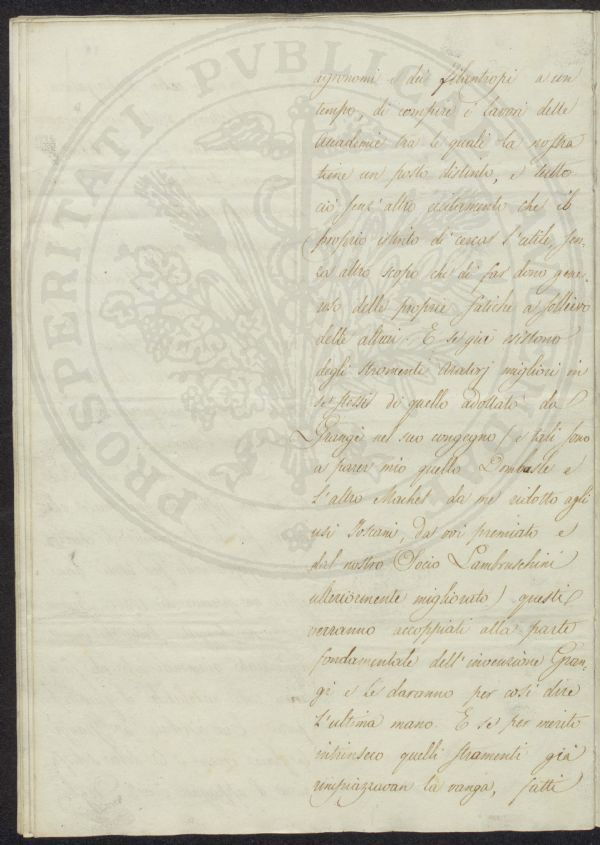 agronomi e dei filantropi a un
tempo, di compire i lavori delle
Accademie tra le quali la nostra
tiene un posto distinto, e tutto
ciò senz'altro eccitamento che il
proprio istinto di cercar l'utile, sen-
za altro scopo che di far dono gene-
roso delle proprie fatiche a sollievo
delle altrui. E se già esistono
degli stromenti aratorj migliori in
se stessi di quello adottato da
Grangé nel suo congegno (e tali sono
a parer mio quello Dombasle e
l'altro Machet da me ridotto agli
usi Toscani, da voi premiato e
dal nostro Socio Lambruschini
ulteriormente migliorato) questi
verranno accoppiati alla parte
fondamentale dell'invenzione Gran-
gé e le daranno per così dire
l'ultima mano. E se per merito
intrinseco quelli stramenti già
rimpiazzavan la vanga, fatti
PROSPERITATI PVBLICAE